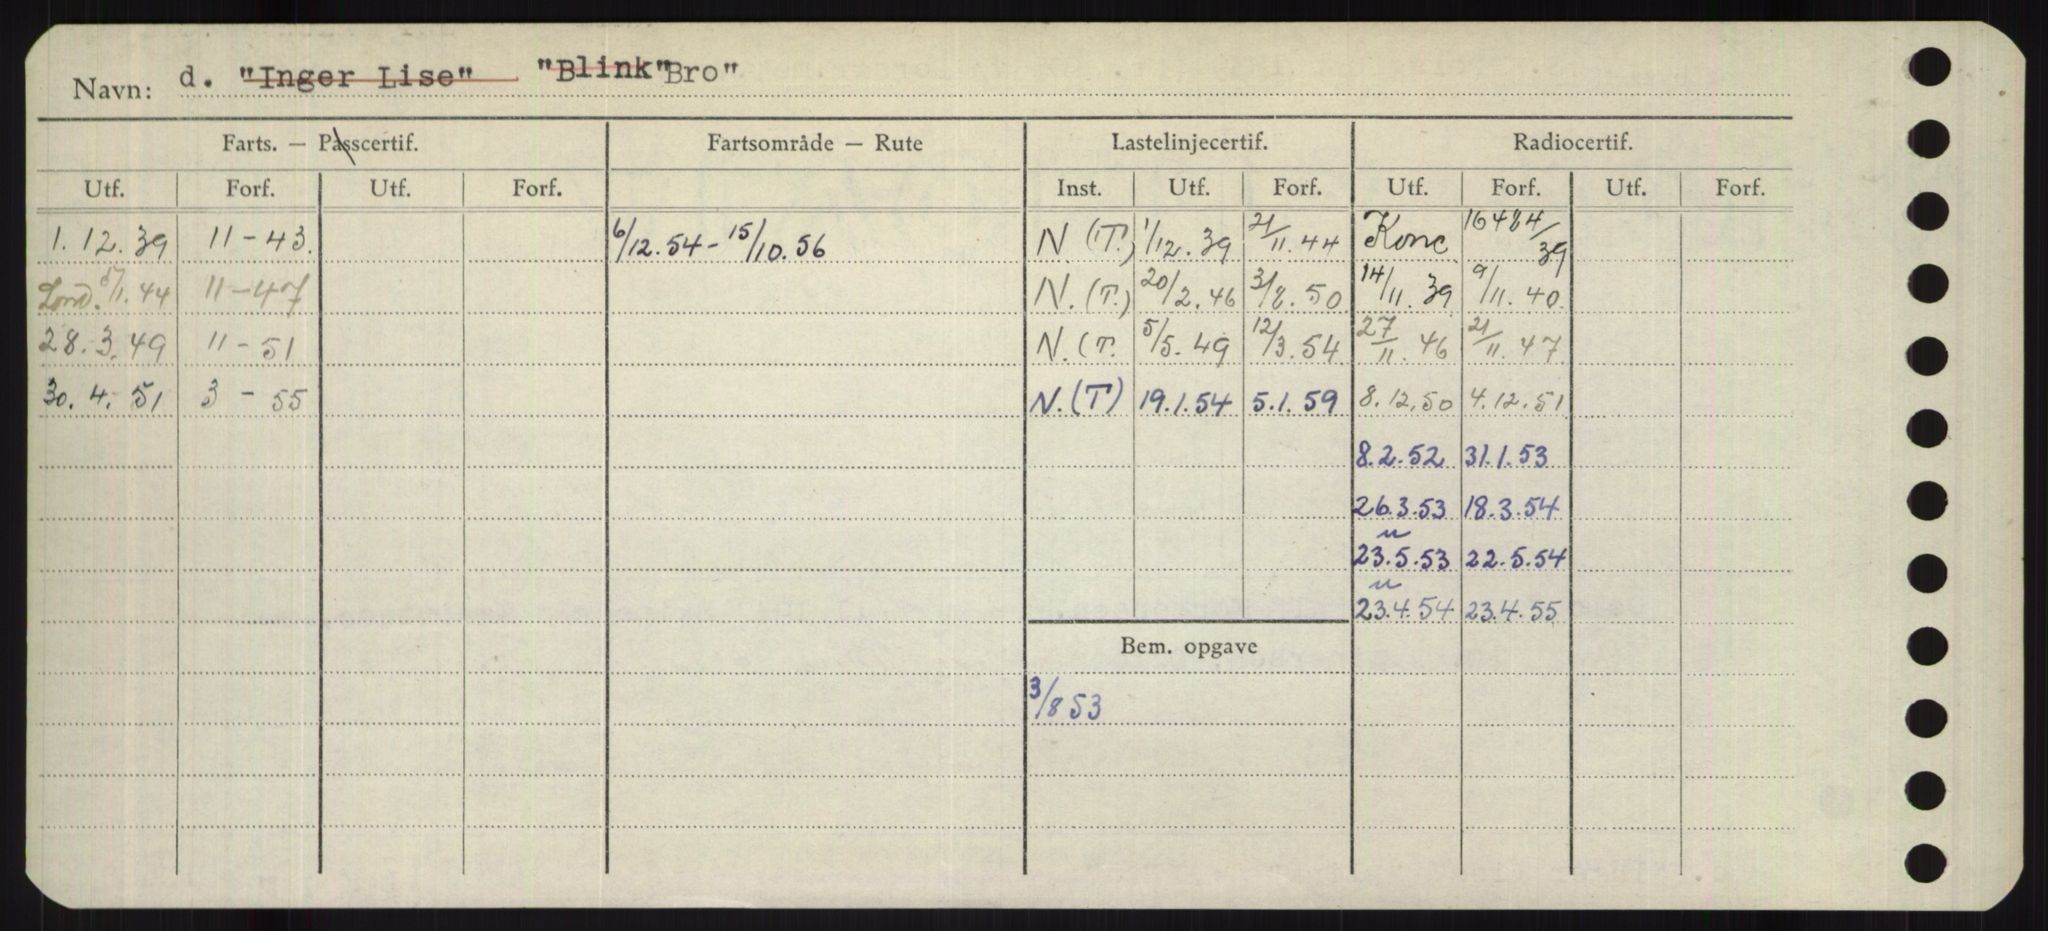 Navn: d. "Inger Lise" "Blink" Bro"
Farts. — Passcertif. Fartsområde — Rute Lastelinjecertif. Radiocertif.
Utf. Forf. Utf. Forf. Inst. Utf. Forf. Utf. Forf. Utf. Forf.
1.12.39 11-43. 6/12.54-15/10.56 N.(T.) 1/12.39 21/11.44 Konc 16484/39
Lond. 11-47 N.(T.) 20/2.46 3/8.50 14/11.39 9/11.40
28.3.49 11-51 N.(T. 5/5.49 12/3.54 27/11.46 21/11.47
30.4.51 3-55 N.(T) 19.1.54 5.1.59 8.12.50 4.12.51
8.2.52 31.1.53
26.3.53 18.3.54
23.5.53 22.5.54
23.4.54 23.4.55
Bem. opgave
3/8 53